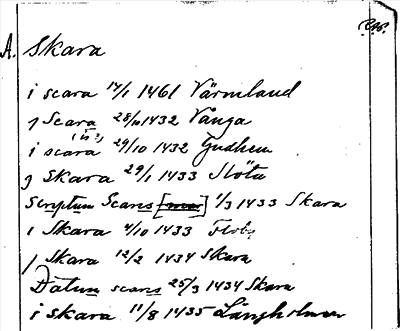 RAP.
A. Skara
i scara 14/1 1461 Värmland
j Scara 28/10 1432 Vånga
(is?)
i scara 29/10 1432 Gudhem
j Skara 29/1 1433 Slöta
Scriptum Scaris 1/3 1433 Skara
i Skara 4/10 1433 Floby
j Skara 12/2 1434 Skara
Datum scaris 25/3 1434 Skara
i Skara 11/8 1435 Långholmen